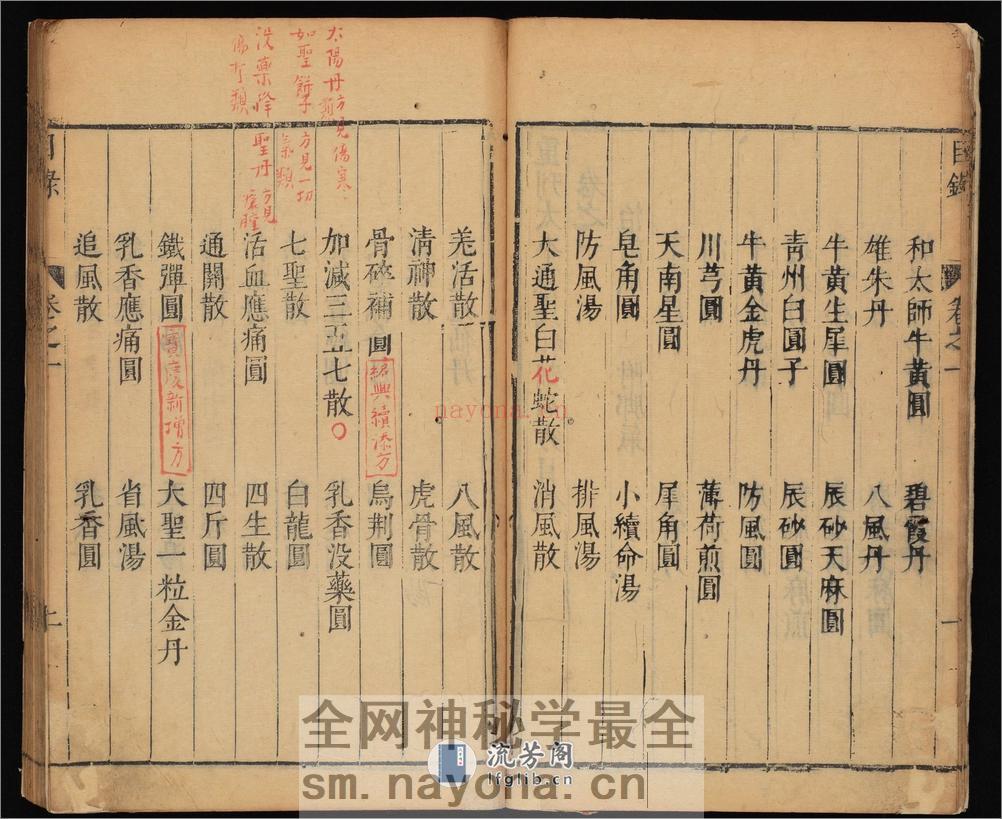 目錄 卷之一 一
和太師牛黃圓 碧霞丹
雄朱丹 八風丹
牛黃生犀圓 辰砂天麻圓
青州白圓子 辰砂圓
牛黃金虎丹 防風圓
川芎圓 薄荷煎圓
天南星圓 犀角圓
皂角圓 小續命湯
防風湯 排風湯
大通聖白花蛇散 消風散
羌活散 八風散
清神散 虎骨散
骨碎補圓 紹興續添方 烏荆圓
加減三五七散 乳香没藥圓
七聖散 白龍圓
活血應痛圓 四生散
通關散 四斤圓
鐵彈圓 寶慶新增方 大聖一粒金丹
乳香應痛圓 省風湯
追風散 乳香圓
目錄 卷之一
太陽丹方見傷寒類
如聖餅子方見一切氣類
没藥降聖丹方見瘡腫傷折類
nayona.
全网神秘学最全
流芳阁
lfglib.cn
sm.nayona.cn